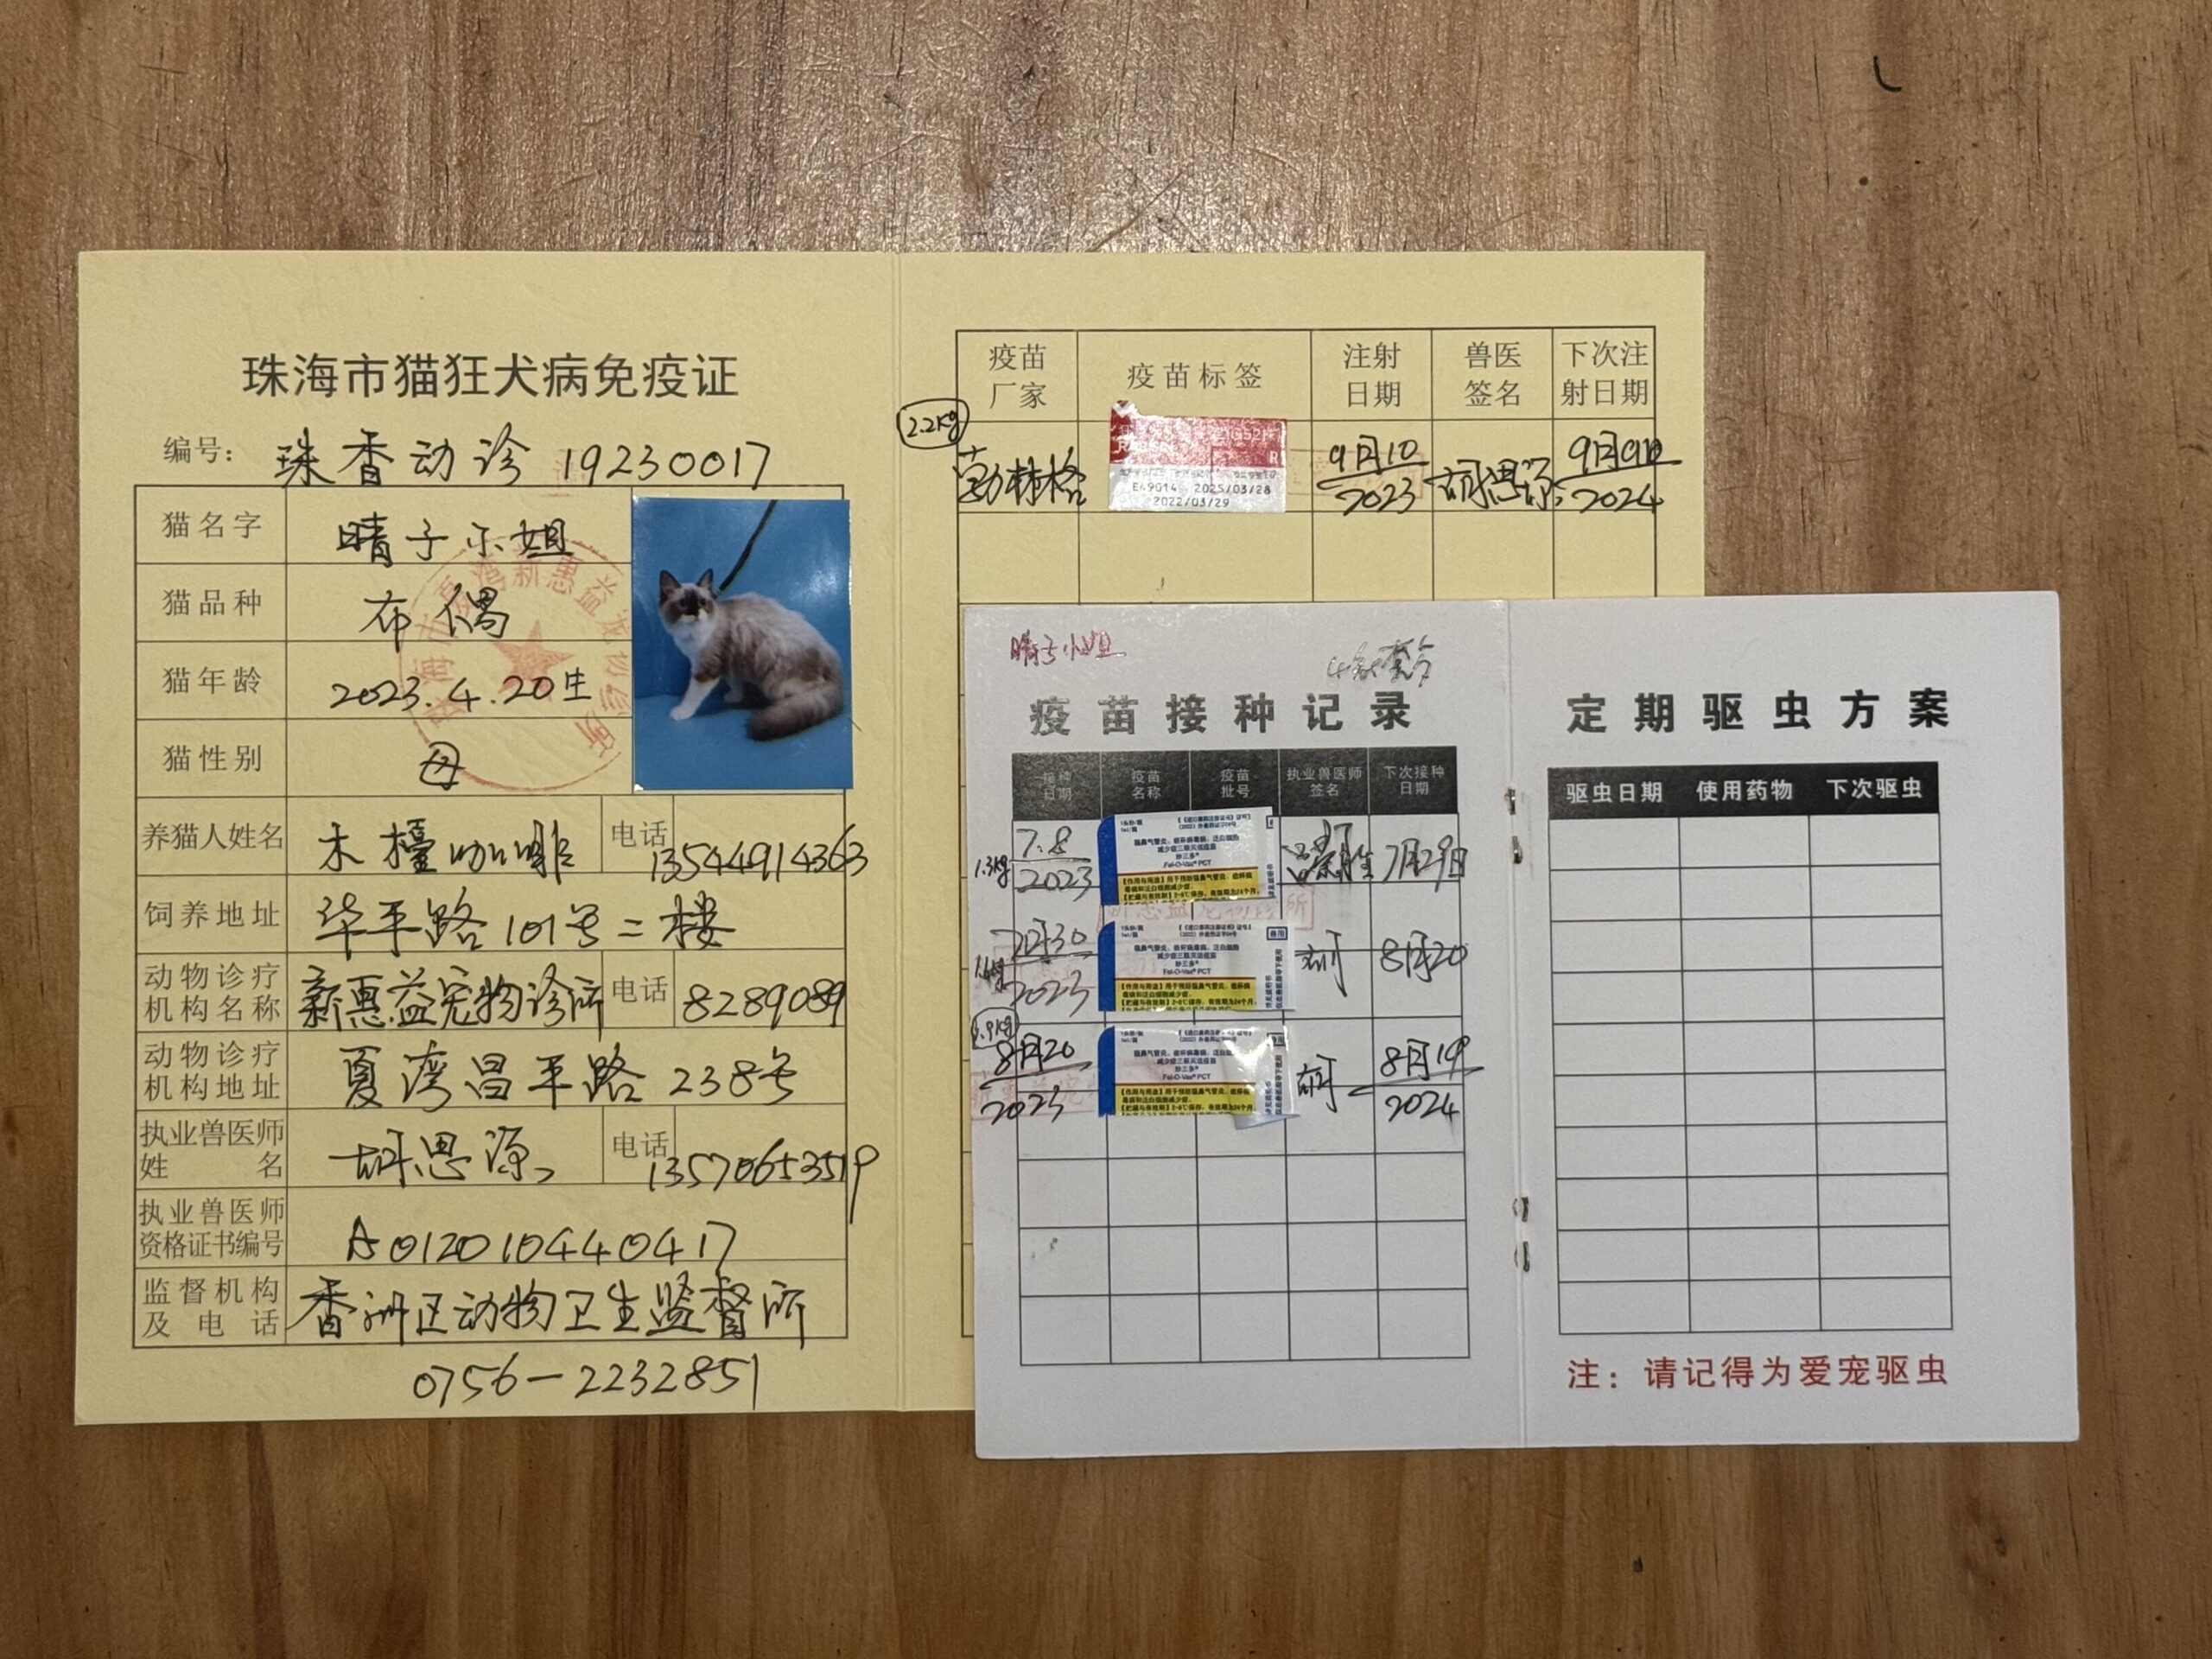 珠海市猫狂犬病免疫证
编号: 珠香动诊 19230017
猫名字 晴子小姐
猫品种 布偶
猫年龄 2023.4.20生
猫性别 母
养猫人姓名 木橦咖啡 电话 13544914363
饲养地址 华平路101号二楼
动物诊疗机构名称 新惠益宠物诊所 电话 8289089
动物诊疗机构地址 夏湾昌平路238号
执业兽医师姓名 胡思源 电话 13570653519
执业兽医师资格证书编号 A012010440417
监督机构及电话 香洲区动物卫生监督所
0756-2232851
疫苗厂家 疫苗标签 注射日期 兽医签名 下次注射日期
2.2kg
勃林格
R
E49014 2025/03/28
2022/03/29
9月10
2023
胡思源
2024
晴子小姐
疫苗接种记录
接种日期 疫苗名称 疫苗批号 执业兽医师签名 下次接种日期
1.3kg
7.8
2023
猫鼻气管炎、嵌杯病毒病、泛白细胞
减少症三联灭活疫苗
妙三多
Fel-O-Vax PCT
7月29日
7月30
2023
猫鼻气管炎、嵌杯病毒病、泛白细胞
减少症三联灭活疫苗
妙三多
Fel-O-Vax PCT
胡
8月20
8月20
2023
猫鼻气管炎、嵌杯病毒病、泛白细胞
减少症三联灭活疫苗
妙三多
Fel-O-Vax PCT
胡
8月19
2024
定期驱虫方案
驱虫日期 使用药物 下次驱虫
注：请记得为爱宠驱虫